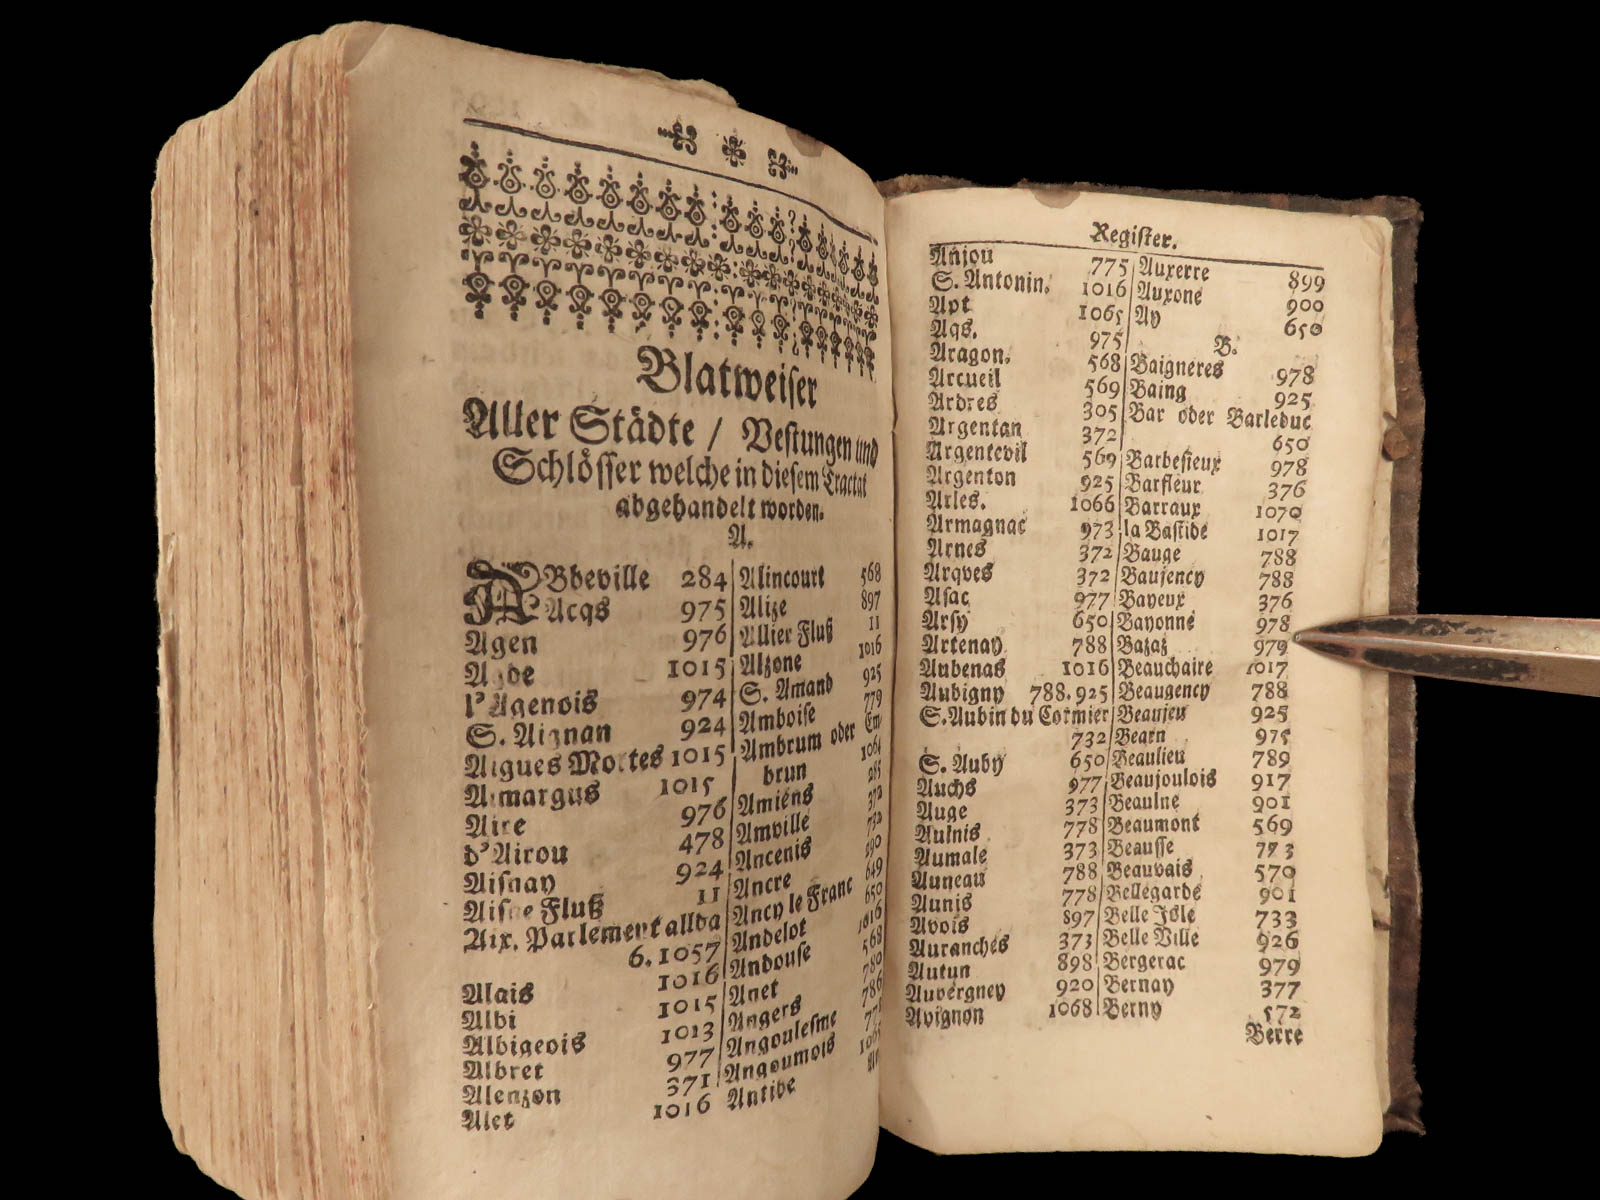 Blatweiser
Aller Städte / Vestungen und
Schlösser welche in diesem Tractat
abgehandelt worden.
A.
ABbeville 284
Acqs 975
Agen 976
Agde 1015
l'Agenois 974
S. Aignan 924
Aigues Mortes 1015
Aimargus 1015
Aire 976
d'Airou 478
Aisnay 924
Aisne Fluß 11
Aix. Parlement allda
6. 1057
Alais 1016
Albi 1015
Albigeois 1013
Albret 977
Alenzon 371
Alet 1016
Alincourt 568
Alize 897
Allier Fluß 11
Alzone 1016
S. Amand 925
Amboise 779
Ambrum oder Em-
brun 1064
Amiens 285
Amville 372
Ancenis 732
Ancre 290
Ancy le Franc 649
Andelot 650
Andouse 1016
Anet 568
Angers 780
Angoulesme 786
Angoumois
Antibe
Register.
Anjou 775
S. Antonin. 1016
Apt 1065
Aqs. 975
Aragon. 568
Arcueil 569
Ardres 305
Argentan 372
Argentevil 569
Argenton 925
Arles. 1066
Armagnac 973
Arnes 372
Arqves 372
Asac 977
Arsy 650
Artenay 788
Aubenas 1016
Aubigny 788. 925
S. Aubin du Cormier
732
S. Auby 650
Auchs 977
Auge 373
Aulnis 778
Aumale 373
Auneau 788
Aunis 778
Avois 897
Auranches 373
Autun 898
Auvergney 920
Avignon 1068
Auxerre 899
Auxone 900
Ay 650
B.
Baigneres 978
Baing 925
Bar oder Barleduc
650
Barbesieux 978
Barfleur 376
Barraux 1070
la Bastide 1017
Bauge 788
Baujency 788
Bayeux 376
Bayonne 978
Bazaz 979
Beauchaire 1017
Beaugency 788
Beaujeu 925
Bearn 975
Beaulieu 789
Beaujoulois 917
Beaulne 901
Beaumont 569
Beausse 773
Beauvais 570
Bellegarde 901
Belle Isle 733
Belle Ville 926
Bergerac 979
Bernay 377
Berny 572
Berre